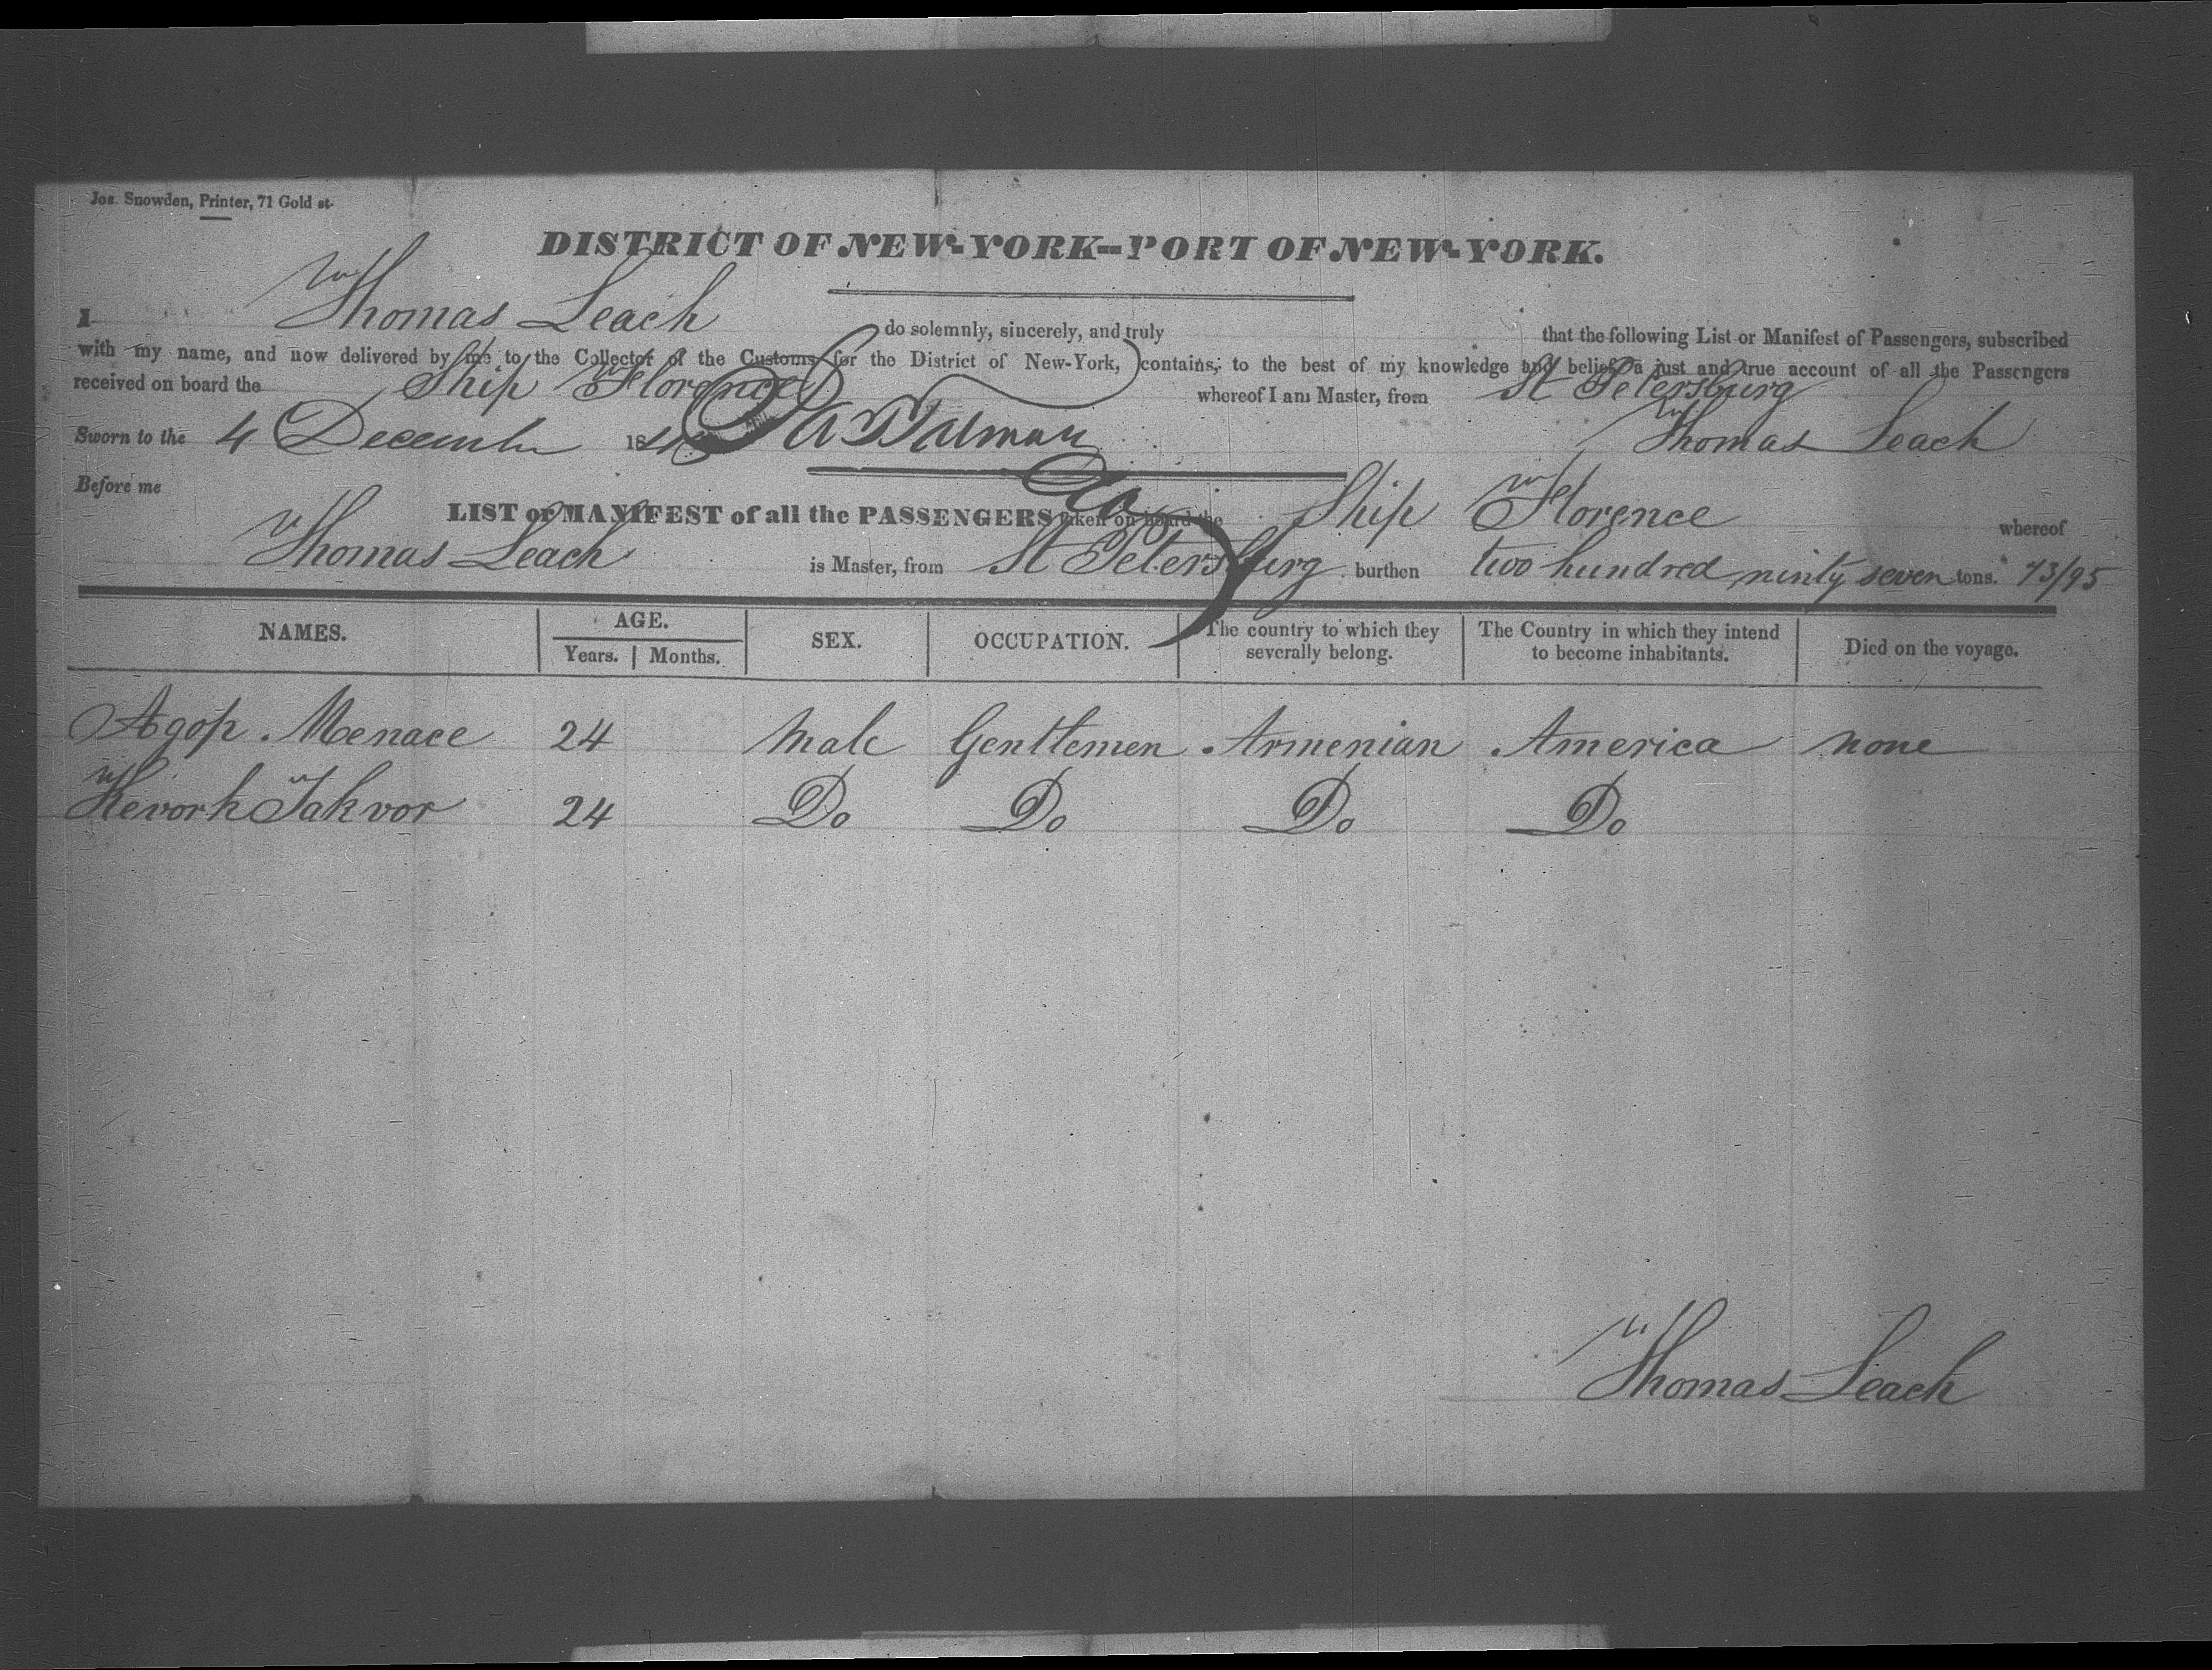 Jos. Snowden, Printer, 71 Gold st.
DISTRICT OF NEW-YORK--PORT OF NEW-YORK.
I Thomas Leach do solemnly, sincerely, and truly that the following List or Manifest of Passengers, subscribed
with my name, and now delivered by me to the Collector of the Customs for the District of New-York, contains, to the best of my knowledge and belief, a just and true account of all the Passengers
received on board the Ship Florence whereof I am Master, from St Petersburg
Sworn to the 4 December 184 Thomas Leach
Before me
LIST or MANIFEST of all the PASSENGERS taken on board the Ship Florence whereof
Thomas Leach is Master, from St Petersburg burthen two hundred ninty seven tons. 73/95
NAMES. AGE. Years. Months. SEX. OCCUPATION. The country to which they severally belong. The Country in which they intend to become inhabitants. Died on the voyage.
Agop Menace 24 Male Gentlemen Armenian America none
Kevork Takvor 24 Do Do Do Do
Thomas Leach